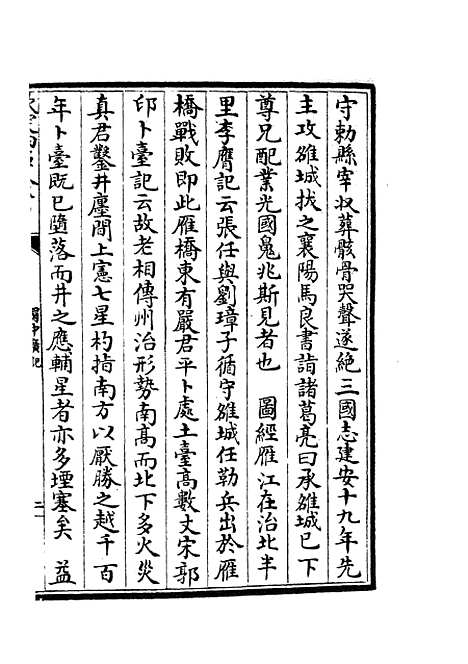 守勅縣宰收葬骸骨哭聲遂絶三國志建安十九年先
主攻雒城拔之襄陽馬良書詣諸葛亮曰承雒城已下
尊兄配業光國魄兆斯見者也　圖經雁江在治北半
里李膺記云張任與劉璋子循守雒城任勒兵出於雁
橋戰敗即此雁橋東有嚴君平卜處土臺髙數丈宋郭
印卜臺記云故老相傳州治形勢南髙而北下多火災
真君鑿井㕓間上憲七星杓指南方以厭勝之越千百
年卜臺既已隳落而井之應輔星者亦多堙塞矣　益
蜀中廣記